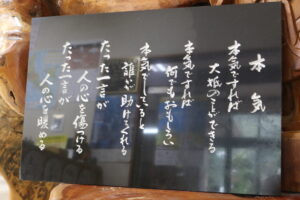 本気
本気ですれば
大抵のことができる
本気ですれば
何でもおもしろい
本気でしていると
誰かが助けてくれる
たった一言が
人の心を傷つける
たった一言が
人の心を暖める